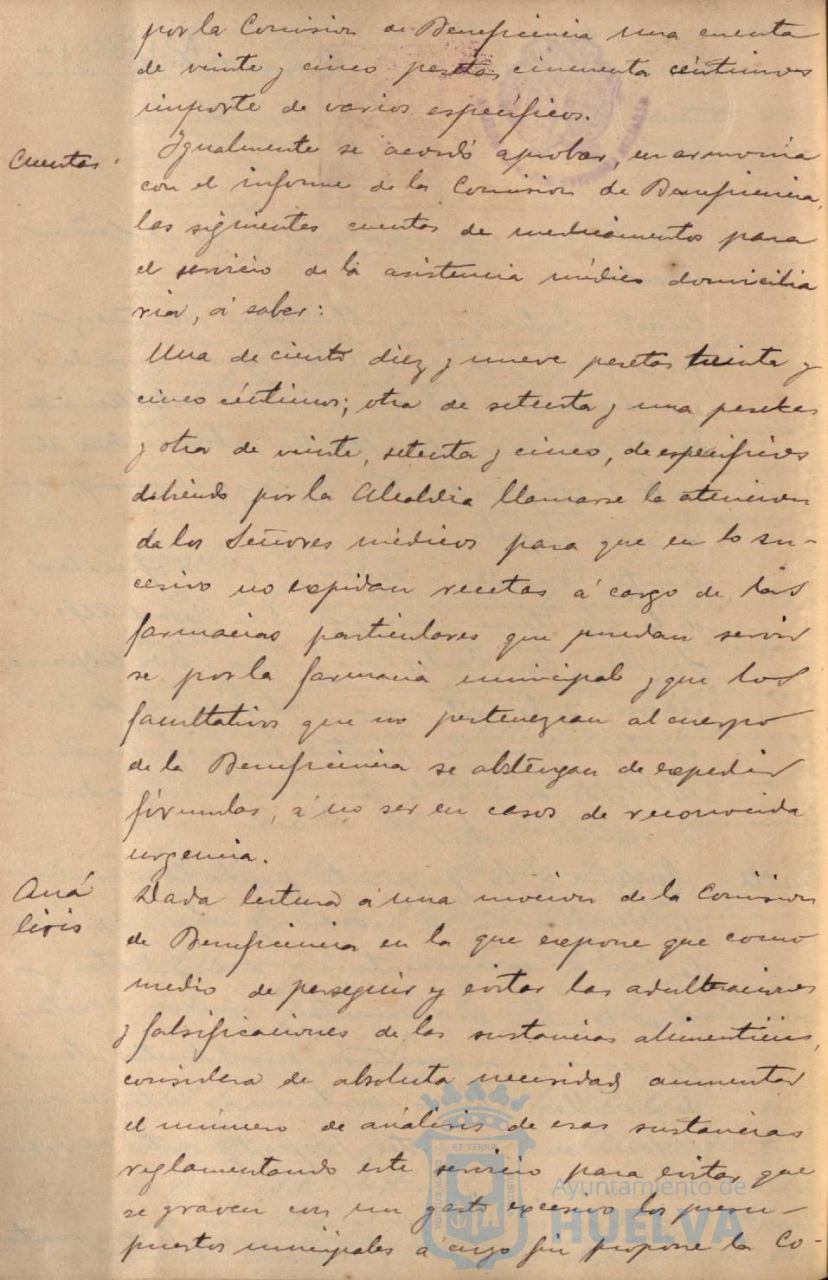 por la Comision de Beneficiencia una cuenta
de veinte y cinco pesetas cincuenta céntimos
importe de varios específicos.
Cuentas
Igualmente se acordó aprobar, en armonia
con el informe de la Comision de Beneficiencia,
las siguientes cuentas de medicamentos para
el servicio de la asistencia médico domicilia
ria, á saber:
Una de ciento diez y nueve pesetas treinta y
cinco céntimos; otra de setenta y una pesetas
y otra de veinte, setenta y cinco, de específicos
debiendo por la Alcaldia llamarse la atencion
de los Señores médicos para que en lo su-
cesivo no expidan recetas á cargo de las
farmacias particulares que puedan servir
se por la farmacia municipal y que los
facultativos que no pertenezcan al cuerpo
de la Beneficiencia se abstengan de expedir
fórmulas, á no ser en casos de reconocida
urgencia.
Aná
lisis
Dada lectura á una mocion de la Comision
de Beneficiencia en la que expone que como
medio de perseguir y evitar las adulteraciones
y falsificaciones de las sustancias alimenticias,
considera de absoluta necesidad aumentar
el número de análisis de esas sustancias
reglamentando este servicio para evitar que
se graven con un gasto excesivo los presu-
puestos municipales a cuyo fin propone la Co-
Ayuntamiento de
HUELVA